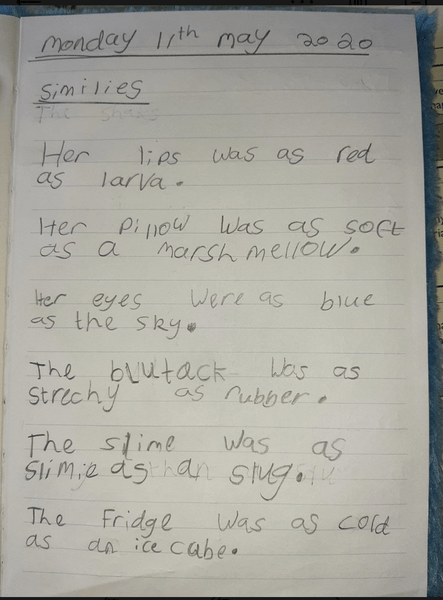 monday 11th may 2020
similies
The shaes
Her lips was as red
as larva.
Her pillow was as soft
as a marshmellow.
Her eyes were as blue
as the sky.
The blutack was as
strechy as rubber.
The slime was as
slimie as an slug.
The Fridge was as cold
as an ice cube.